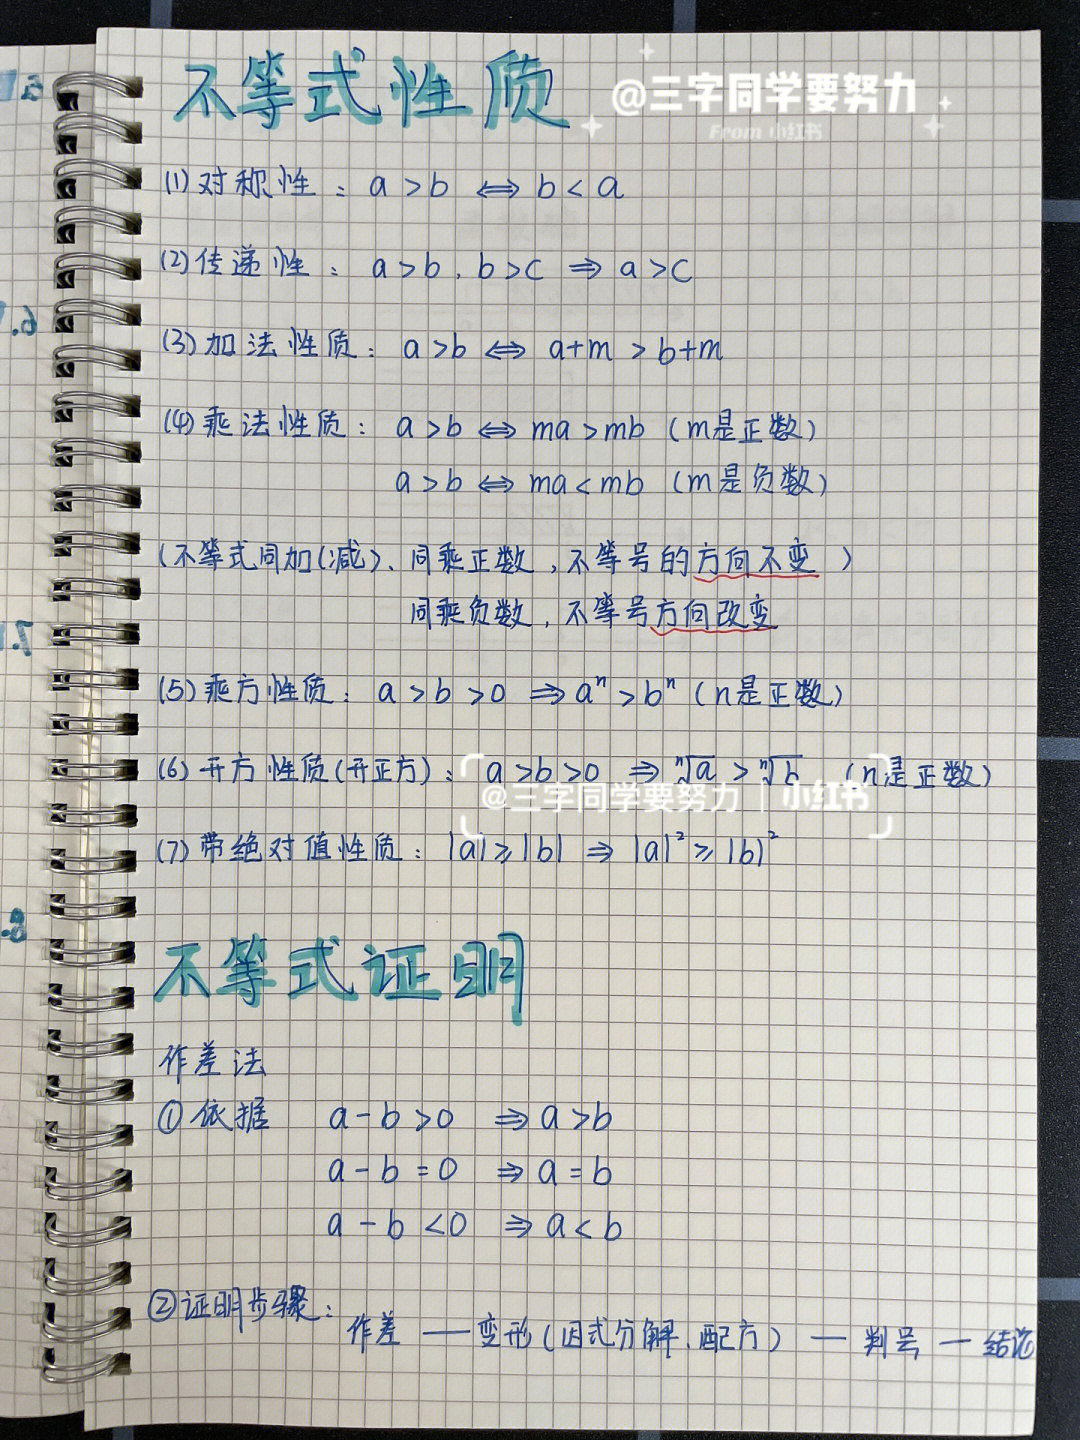 不等式性质
@三字同学要努力
From 小红书
(1)对称性：a>b ⇔ b<a
(2)传递性：a>b，b>c ⇒ a>c
(3)加法性质：a>b ⇔ a+m>b+m
(4)乘法性质：a>b ⇔ ma>mb（m是正数）
a>b ⇔ ma<mb（m是负数）
(不等式同加(减)、同乘正数，不等号的方向不变)
同乘负数，不等号方向改变
(5)乘方性质：a>b>0 ⇒ aⁿ>bⁿ（n是正数）
(6)开方性质(开正方)：a>b>0 ⇒ ⁿ√a > ⁿ√b （n是正数）
@三字同学要努力 | 小红书
(7)带绝对值性质：|a|≥|b| ⇒ |a|²≥|b|²
不等式证明
作差法
①依据 a-b>0 ⇒ a>b
a-b=0 ⇒ a=b
a-b<0 ⇒ a<b
②证明步骤：
作差 — 变形(因式分解、配方) — 判号 — 结论
5
6.
7.
8.